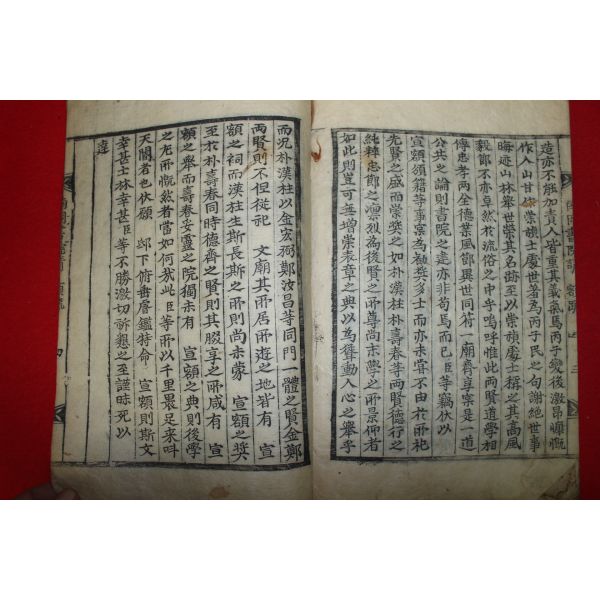 造亦不能加責人皆重其義氣馬丙子變後激昂慷慨
作入山甘
崇韻士慶世著為丙子民之句謝絶世事
晦迹山林擧世榮其名跡至以崇禎處士稱之其高風
毅節不亦卓然於流俗之中乎嗚呼惟此兩賢道學相
傳忠孝兩全德業風節異世同符一廟齊享寔是一道
公共之論則書院之建亦非苟馬而已臣等竊伏以
宣額頒籍等事寔為
奬多士而亦未甞不由於所祀
先賢之盛而崇奬之如朴漢柱朴壽春等兩賢德行之
純粹忠節之凜烈為後賢之所尊尚末學之所景仰者
如此則豈可無增崇表章之典以為聳動人心之擧乎
而况朴漢柱以金宏弼鄭汝昌等同門一體之賢金鄭
兩賢則不但從祀 文廟其所居所遊之地皆有 宣
額之祠而漢柱生斯長斯之所則尚未蒙 宣額之奬
至於朴壽春同時德齋之賢則其腏享之所咸有 宣
額之擧而壽春妥靈之院獨未有 宣額之典則後學
之尤所慨然者當如何哉此臣等所以千里裹足來叫
天閽者也伏願 邸下俯垂廇鑑特命 宣額則斯文
幸甚士林幸甚臣等不勝激切祈懇之至謹昧死以
達
四